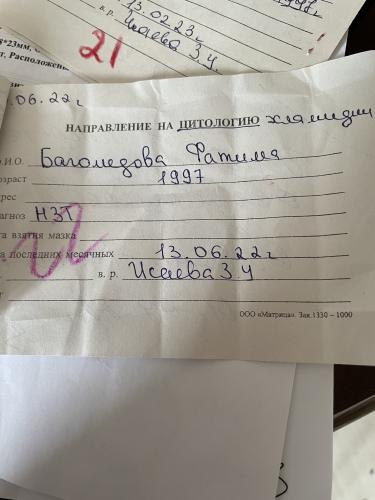 13.02.23г
в. р. Исаева З.Ч.
21
8*23мм,
т, Расположен
.06.22г
НАПРАВЛЕНИЕ НА ЦИТОЛОГИЮ хламидии
.И.О. Багомедова Фатима
озраст 1997
рес
агноз НЗТ
та взятия мазка
а последних месячных 13.06.22г
22
в. р. Исаева З Ч
ООО «Матрица». Зак.1330 – 1000